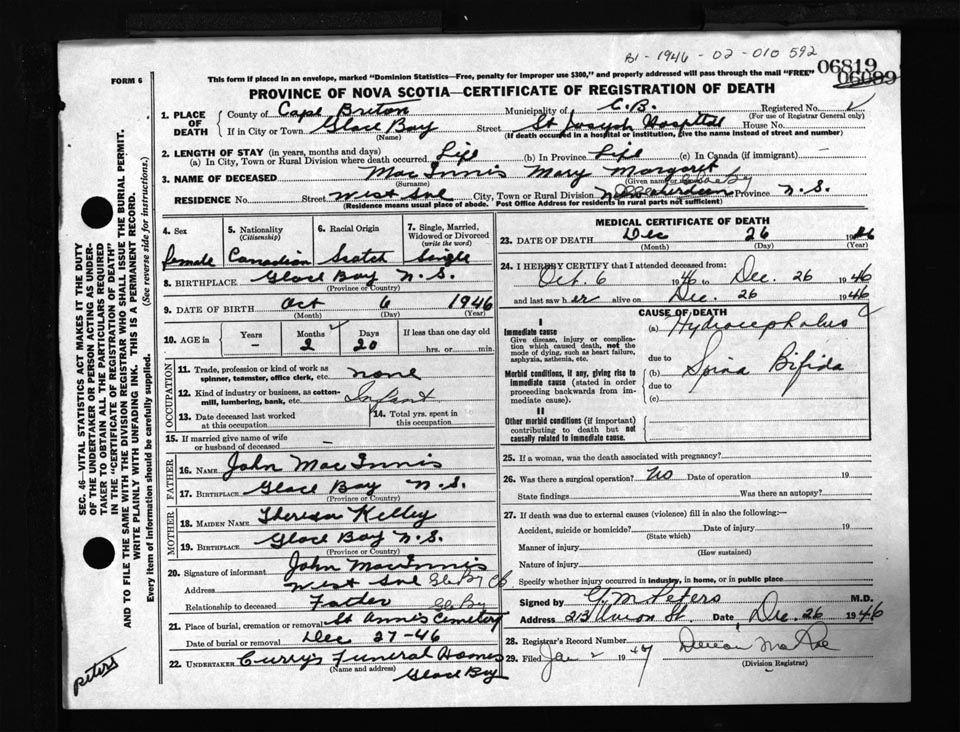 B1-1946-02-010592
06819
06099
FORM 6
This form if placed in an envelope, marked "Dominion Statistics—Free, penalty for improper use $300," and properly addressed will pass through the mail "FREE"
PROVINCE OF NOVA SCOTIA—CERTIFICATE OF REGISTRATION OF DEATH
1. PLACE OF DEATH
County of Cape Breton Municipality of C.B. Registered No.
(For use of Registrar General only)
If in City or Town Glace Bay Street St Joseph Hospital House No.
(Name) (If death occurred in a hospital or institution, give the name instead of street and number)
2. LENGTH OF STAY (in years, months and days)
(a) In City, Town or Rural Division where death occurred Life (b) In Province Life (c) In Canada (if immigrant) —
3. NAME OF DECEASED MacInnis Mary Margaret
(Surname) (Given name or names)
RESIDENCE No. Street West Ave City, Town or Rural Division Province N.S.
(Residence means usual place of abode. Post Office Address for residents in rural parts not sufficient)
4. Sex 5. Nationality (Citizenship) 6. Racial Origin 7. Single, Married, Widowed or Divorced (write the word)
female Canadian Scotch Single
8. BIRTHPLACE Glace Bay N.S.
(Province or Country)
9. DATE OF BIRTH Oct 6 1946
(Month) (Day) (Year)
10. AGE in Years Months Days If less than one day old
— 2 20 hrs. or min.
OCCUPATION
11. Trade, profession or kind of work as spinner, teamster, office clerk, etc. none
12. Kind of industry or business, as cotton-mill, lumbering, bank, etc. Infant
13. Date deceased last worked at this occupation 14. Total yrs. spent in this occupation
15. If married give name of wife or husband of deceased —
FATHER
16. NAME John MacInnis
17. BIRTHPLACE Glace Bay N.S.
(Province or Country)
MOTHER
18. MAIDEN NAME Theresa Kelley
19. BIRTHPLACE Glace Bay N.S.
(Province or Country)
20. Signature of informant John MacInnis
Address West Ave
Relationship to deceased Father
21. Place of burial, cremation or removal St Anne's Cemetery
Date of burial or removal Dec 27-46
22. UNDERTAKER Curry's Funeral Homes
(Name and address) Glace Bay
MEDICAL CERTIFICATE OF DEATH
23. DATE OF DEATH Dec 26 1946
(Month) (Day) (Year)
24. I HEREBY CERTIFY that I attended deceased from:
Oct. 6 1946 to Dec. 26 1946
and last saw her alive on Dec. 26 1946
CAUSE OF DEATH
I
Immediate cause (a) Hydrocephalus
Give disease, injury or complication which caused death, not the mode of dying, such as heart failure, asphyxia, asthenia, etc.
due to
Morbid conditions, if any, giving rise to immediate cause (stated in order proceeding backwards from immediate cause).
(b) Spina Bifida
due to
(c)
II
Other morbid conditions (if important) contributing to death but not causally related to immediate cause.
25. If a woman, was the death associated with pregnancy?
26. Was there a surgical operation? No Date of operation 19
State findings Was there an autopsy?
27. If death was due to external causes (violence) fill in also the following:—
Accident, suicide or homicide? Date of injury 19
(State which)
Manner of injury
(How sustained)
Nature of injury
Specify whether injury occurred in industry, in home, or in public place
Signed by G M Peters M.D.
Address 213 Union St. Date Dec. 26 1946
28. Registrar's Record Number
29. Filed Jan 2 1947
(Division Registrar)
SEC. 46—VITAL STATISTICS ACT MAKES IT THE DUTY
OF THE UNDERTAKER OR PERSON ACTING AS UNDER-
TAKER TO OBTAIN ALL THE PARTICULARS REQUIRED
IN THE "CERTIFICATE OF REGISTRATION OF DEATH"
AND TO FILE THE SAME WITH THE DIVISION REGISTRAR WHO SHALL ISSUE THE BURIAL PERMIT.
WRITE PLAINLY WITH UNFADING INK. THIS IS A PERMANENT RECORD.
Every item of information should be carefully supplied. (See reverse side for instructions.)
Peters